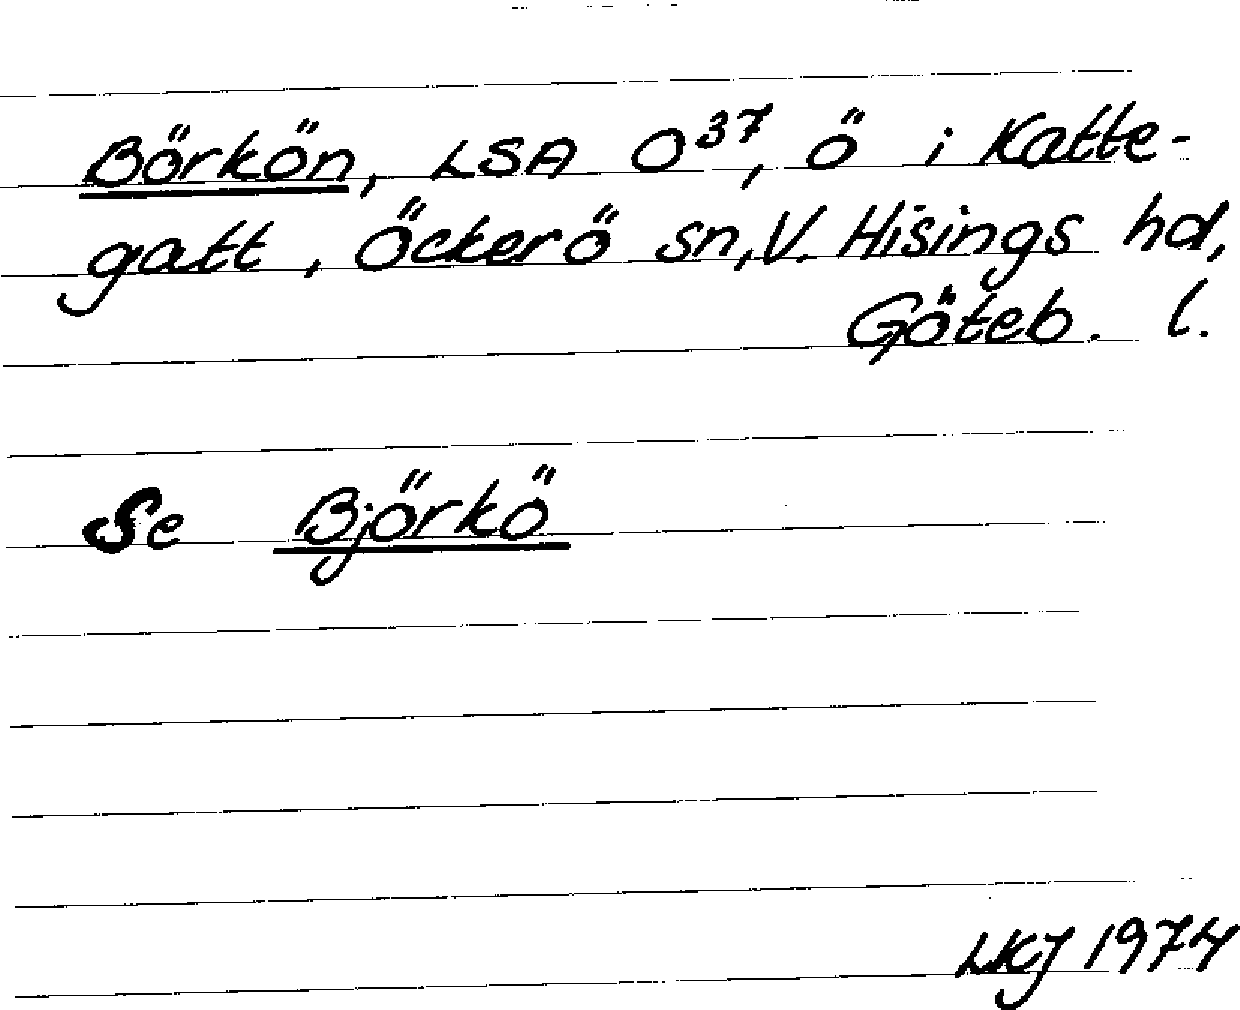 Börkön, LSA O³⁷, ö i Katte-
gatt, Öckerö sn, V. Hisings hd,
Göteb. l.
Se Björkö
LKJ 1974